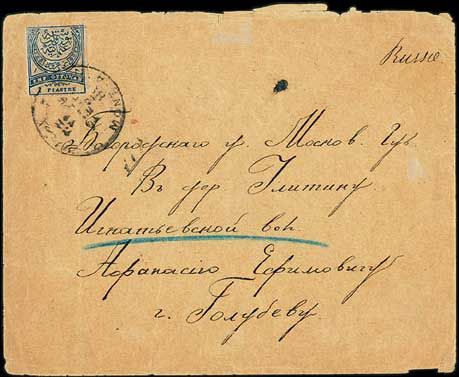 Russie
PIASTRE
Богородскаго у. Москов. Губ.
Въ дер. Глитину
Игнатьевской вол.
Афанасію Ефимовичу
г. Голубеву